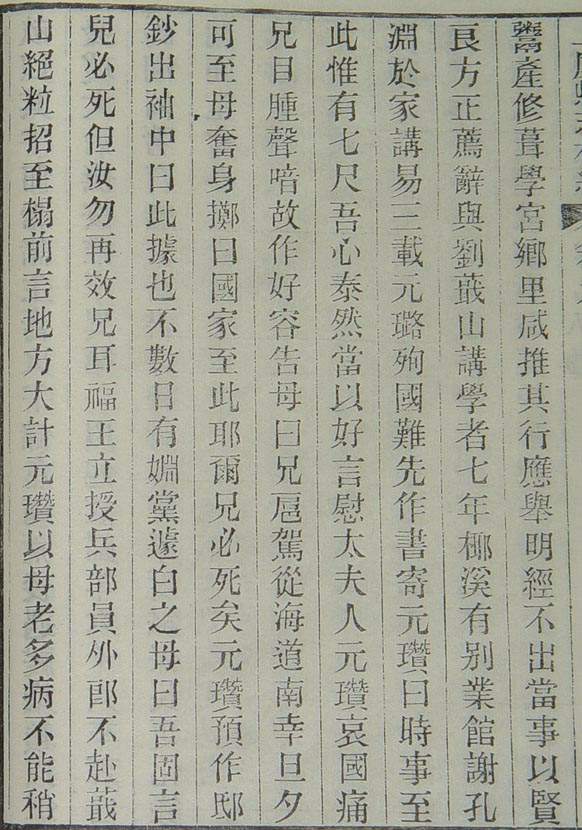 鬻產修葺學宮鄉里咸推其行應舉明經不出當事以賢
良方正薦辭與劉蕺山講學者七年栁溪有别業館謝孔
淵於家講易三載元璐殉國難先作書寄元瓚曰時事至
此惟有七尺吾心泰然當以好言慰太夫人元瓚哀國痛
兄目腫聲喑故作好容告母曰兄扈駕從海道南幸旦夕
可至母奮身擲曰國家至此耶爾兄必死矣元瓚預作邸
鈔出袖中曰此據也不數日有姻黨遽白之母曰吾固言
兒必死但汝勿再效兄耳福王立授兵部員外郎不赴蕺
山絕粒招至榻前言地方大計元瓚以母老多病不能稍